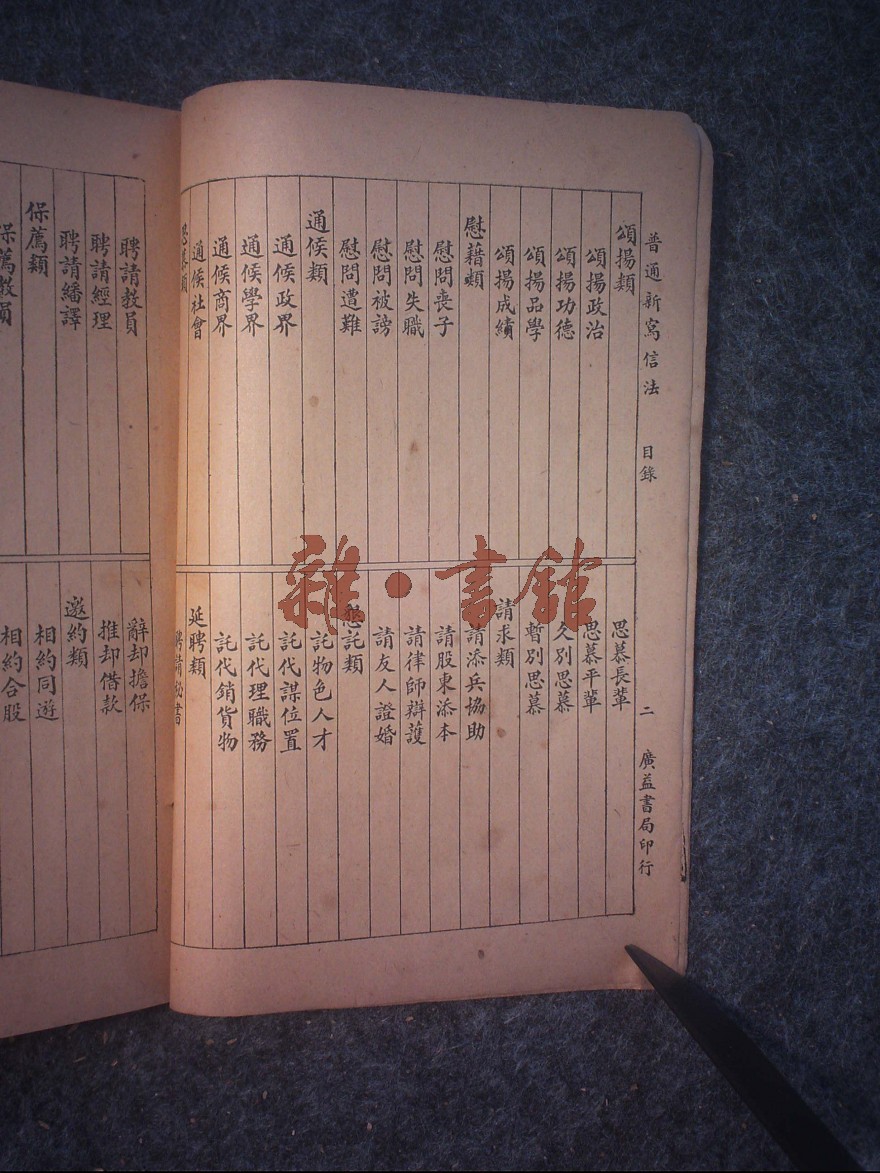 普通新寫信法 目錄 二 廣益書局印行
頌揚類
頌揚政治
頌揚功德
頌揚品學
頌揚成績
慰藉類
慰問喪子
慰問失職
慰問被謗
慰問遭難
通候類
通候政界
通候學界
通候商界
通候社會
思慕類
思慕長輩
思慕平輩
久別思慕
暫別思慕
請求類
請添兵協助
請股東添本
請律師辯護
請友人證婚
懇託類
託物色人才
託代謀位置
託代理職務
託代銷貨物
延聘類
聘請秘書
聘請教員
聘請經理
聘請繙譯
保薦類
保薦教員
辭却擔保
推却借款
邀約類
相約同遊
相約合股
雜·書館